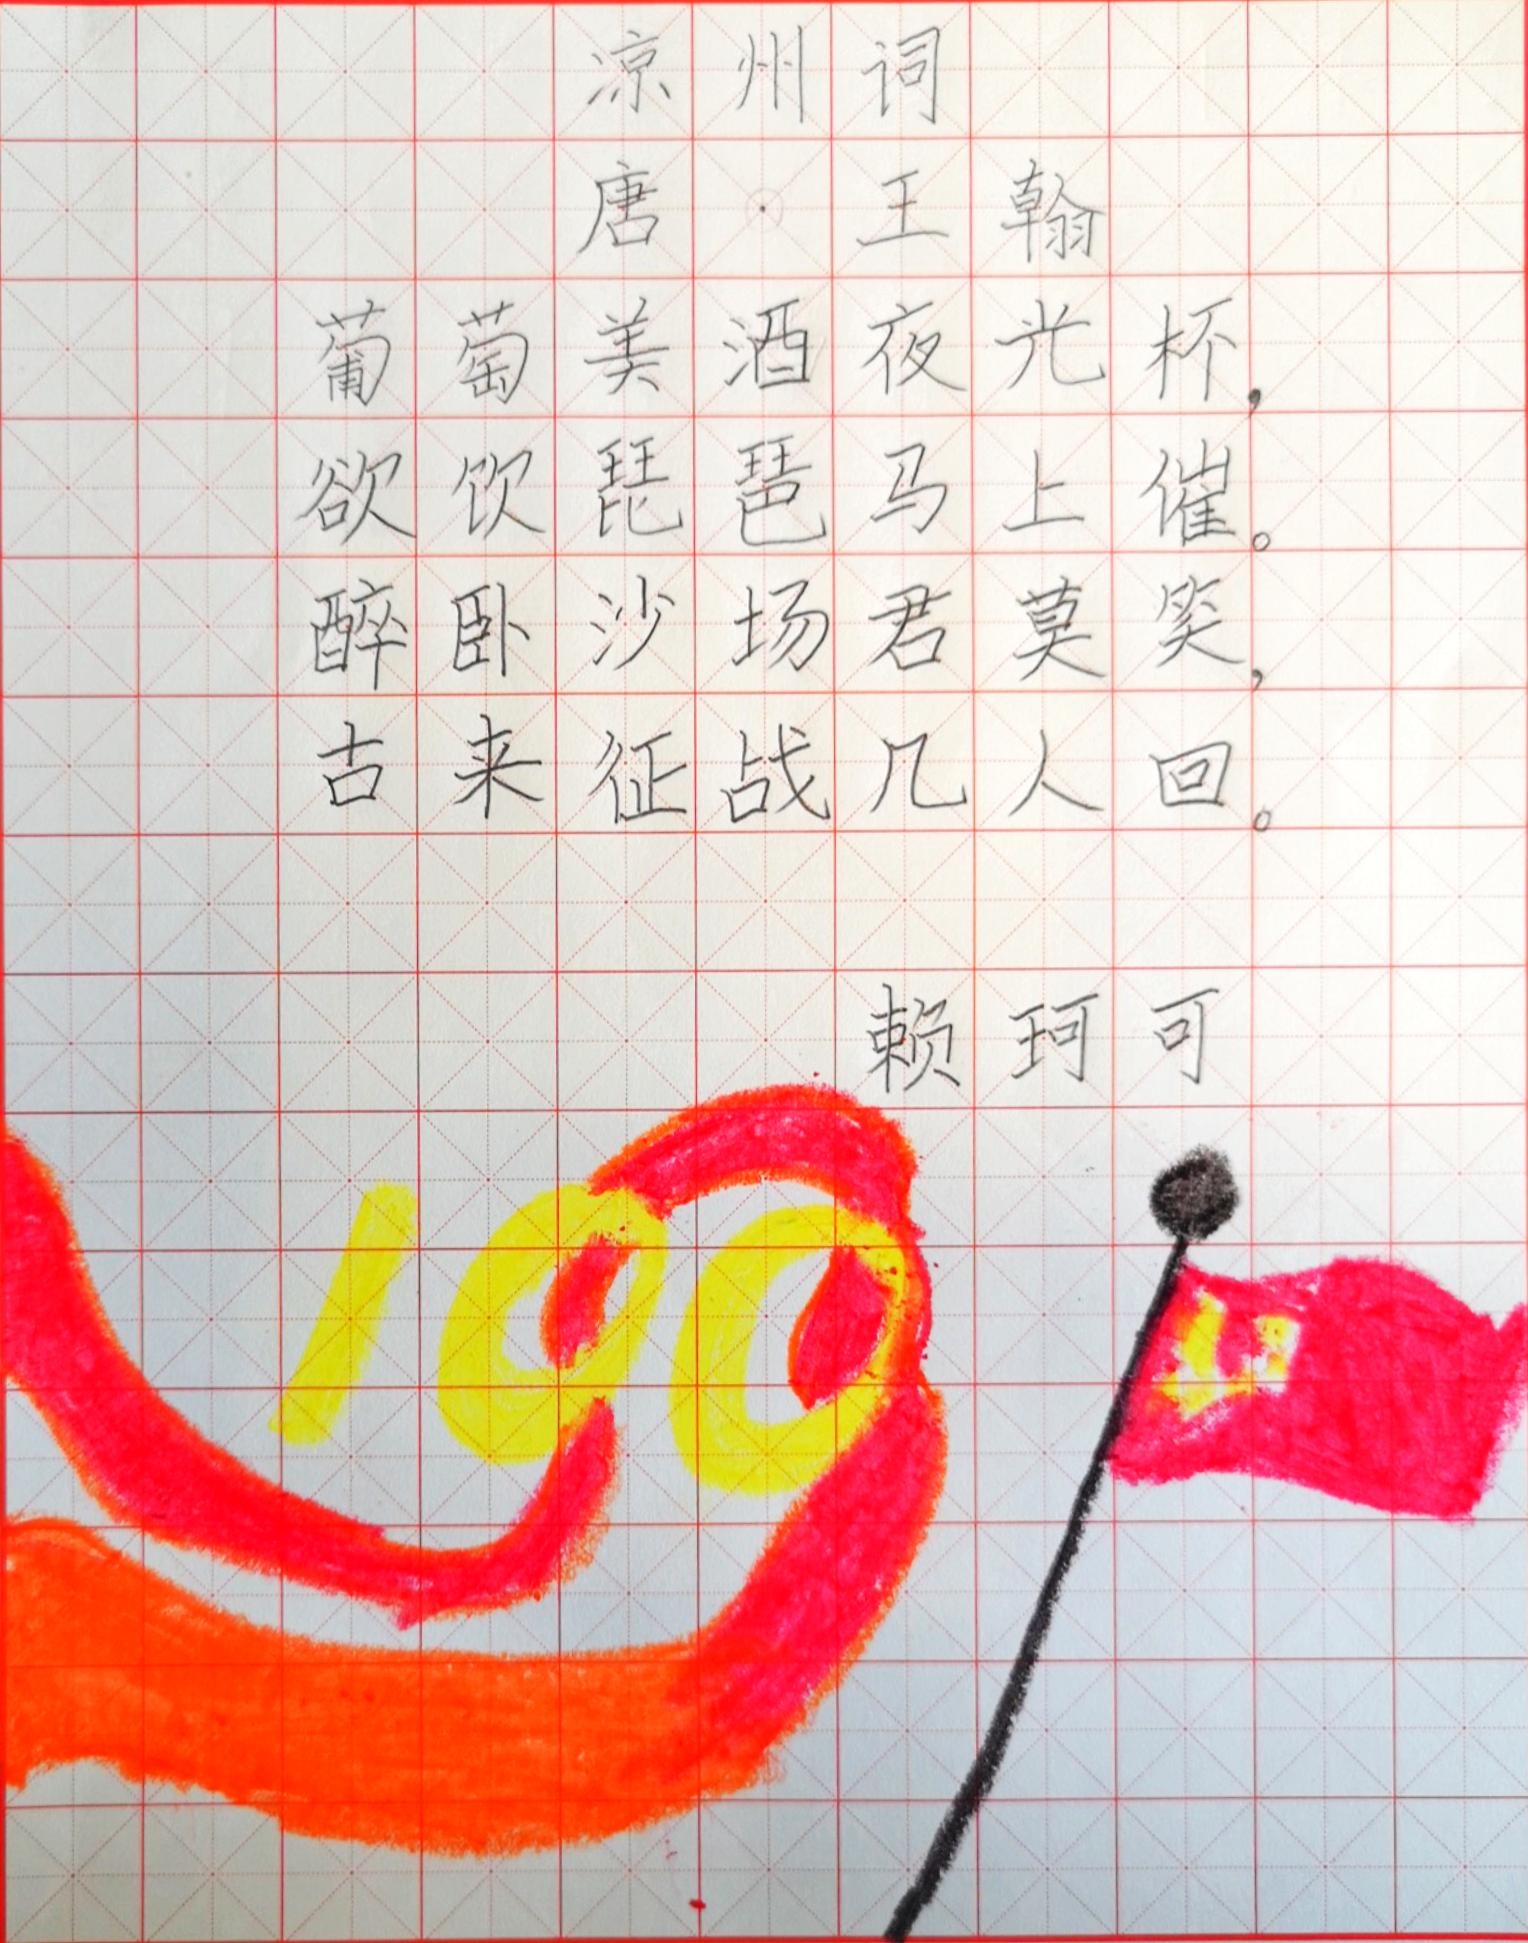 凉州词
唐·王翰
葡萄美酒夜光杯,
欲饮琵琶马上催。
醉卧沙场君莫笑,
古来征战几人回。
赖珂可
100